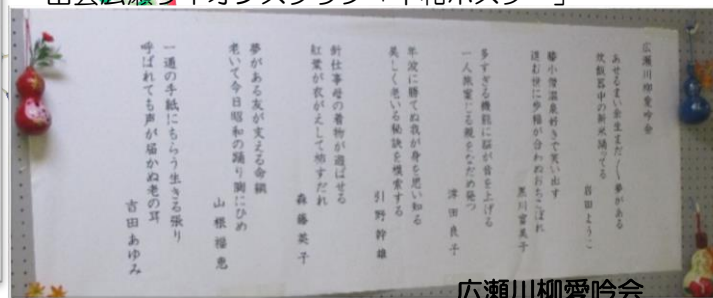 広瀬川柳愛吟会
あせるまい余生まだまだ夢がある
炊飯器中の新米踊ってる
岩田ようこ
膝小僧温泉好きで笑い出す
進む世に歩幅が合わぬおちこぼれ
黒川富美子
多すぎる機能に脳が音を上げる
一人旅案じる親をなだめ発つ
津田良子
年波に勝てぬ我が身を思い知る
美しく老いる秘訣を模索する
引野幹雄
針仕事母の着物が遊ばせる
紅葉が衣がえして柿すだれ
森藤英子
夢がある友が支える命綱
老いて今日昭和の踊り胸にひめ
山根福恵
一通の手紙にもらう生きる張り
呼ばれても声が届かぬ老の耳
吉田あゆみ
広瀬川柳愛吟会